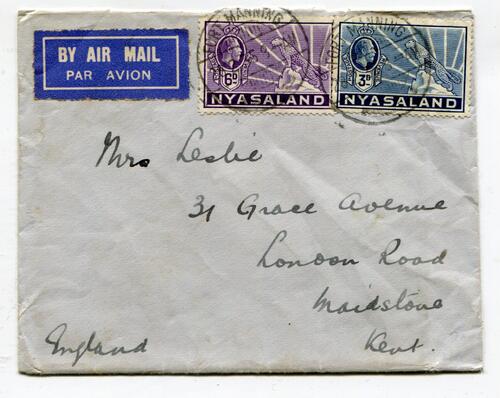 BY AIR MAIL
PAR AVION
FORT MANNING
6D
NYASALAND
FORT MANNING
3D
NYASALAND
Mrs Leslie
31 Grace Avenue
London Road
Maidstone
Kent.
England